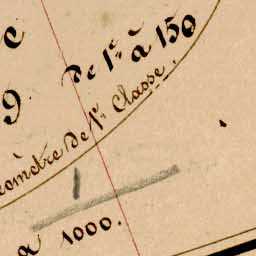 c
9. De 1re à 150
éomètre de 1re Classe.
1
à 1000.